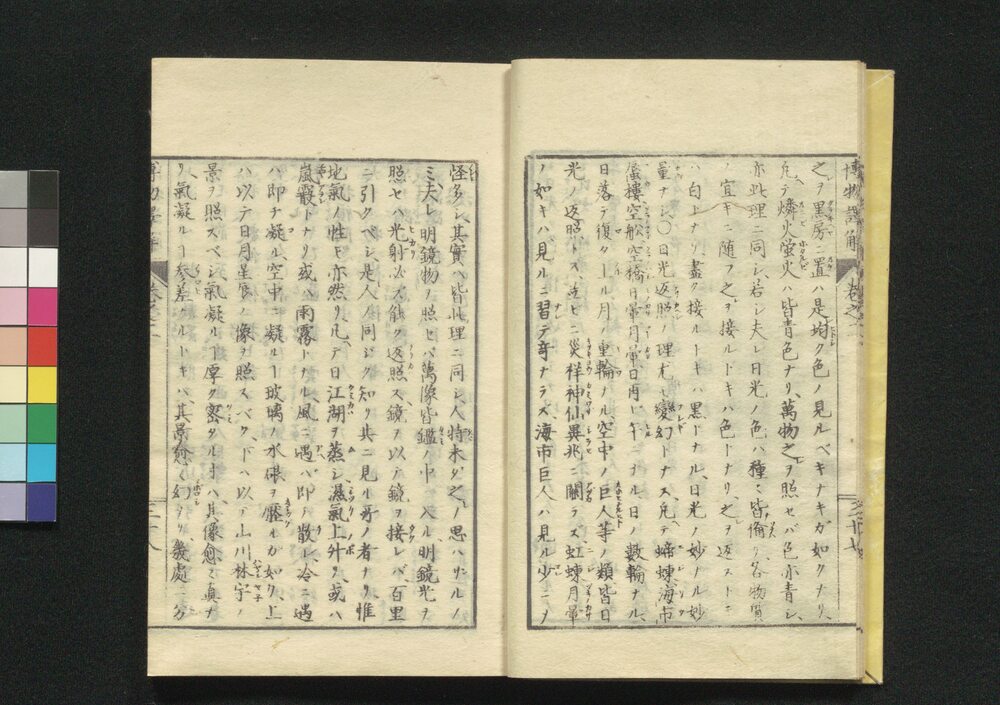 博物語解 巻之二
之ヲ黒房ニ置ハ是均ク色ノ見ルベキナキガ如クナリ、
凡テ燐火螢火ハ皆青色ナリ、萬物之ヲ照セバ色亦青シ、
亦此理ニ同シ、若シ夫レ日光ノ色ハ種々皆備ハリ、各物質
ノ宜キニ随フ之ヲ接ルトキハ色トナリ、之ヲ返ストキ
ハ白トナリ、盡ク接ルトキハ黒トナル、日光ノ妙ノナル妙
量ナシ、〇日光返照ノ理尤モ變幻トナス、凡テ蝃蝀、海市
蜃樓空舩空橋日暈月暈日再ビ午ニナル、日ノ數輪ナル、
日落テ復タ上ル、月ノ重輪ナル空中ノ巨人等ノ類皆日
光ノ返照トス、並ビニ災祥神仙異兆ニ關ラズ、虹蝀月暈
ノ如キハ見ルニ習テ奇ナラズ、海市巨人ハ見ル少ニノ
怪多シ、其實ハ皆此理ニ同シ、人特未ダ之ヲ思ハザルノ
ミ、夫レ明鏡物ヲ照セバ萬像皆鑑ノ中ニ入ル、明鏡光ヲ
照セハ光射必ズ能ク返照ス、鏡ヲ以テ鏡ヲ接レバ、百里
ニ引クベシ、是人ノ同ジク知リ共ニ見ル所ノ者ナリ、惟
地氣ノ性モ亦然リ、凡テ日江湖ヲ蒸シ、濕氣上升リ、或ハ
嵐靄トナリ或ハ雨霧トナル、風ニ遇ハ即チ散シ、冷ニ遇
ハ即チ凝ル、空中ニ凝ルヿ玻璃ノ水銀ヲ壓ルガ如ク、上
ハ以テ日月星辰ノ像ヲ照スベク、下ハ以テ山川林宇ノ
景ヲ照スベシ、氣凝ルヿ厚ク密ナル寸ハ、其像愈々真ナ
リ、氣凝ルヿ參差ナルトキハ、其景愈々幻ナリ、幾處ニ分